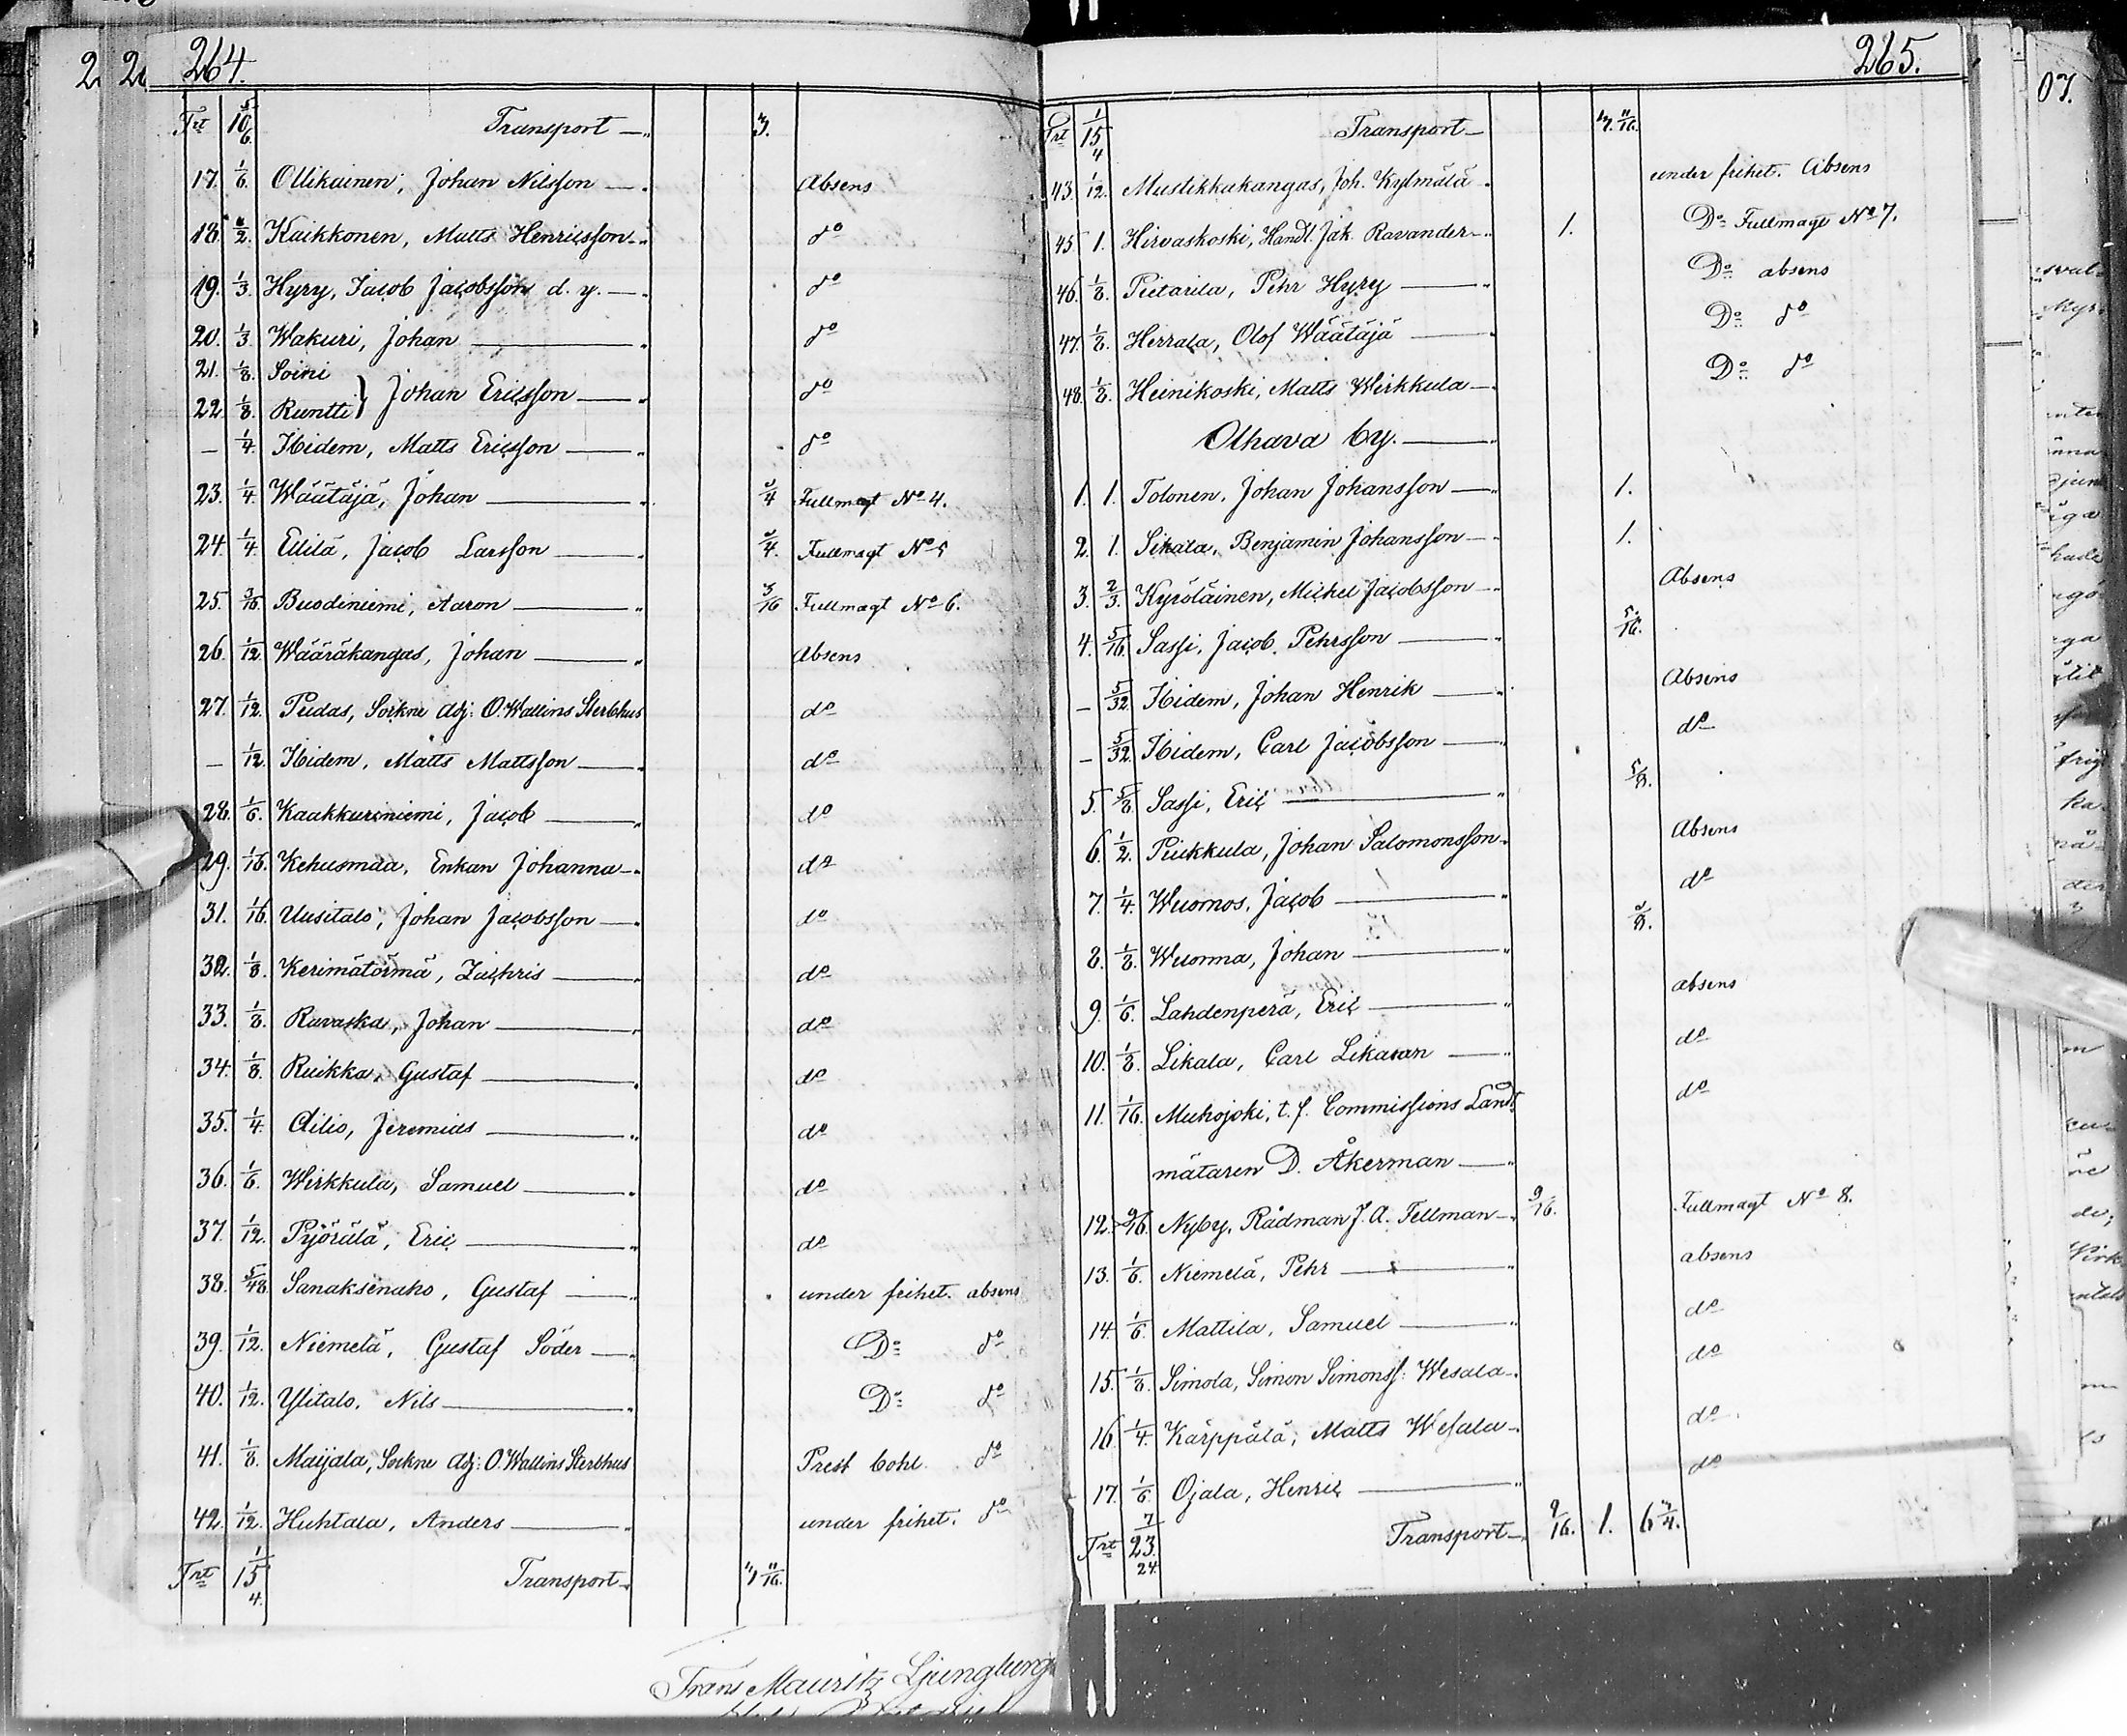 264.
Trt 10 5/6. Transport — 3.
17. 1/6. Ollikainen, Johan Nilsson — Absens
18. 1/2. Kaikkonen, Matts Henricsson — do
19. 1/3. Hyry, Jacob Jacobsson d. y. — do
20. 1/3. Wakuri, Johan — do
21. 1/8. Soini
22. 1/8. Runtti } Johan Ericsson — do
— 1/4. Ibidem, Matts Ericsson — do
23. 1/4. Väätäjä, Johan — 1/4 Fullmagt No 4.
24. 1/4. Eililä, Jacob Larsson — 1/4. Fullmagt No 5
25. 3/16. Buodiniemi, Aaron — 3/16 Fullmagt No 6.
26. 1/12. Wääräkangas, Johan — Absens
27. 1/12. Pudas, Sockne Adj: O. Wallins Sterbhus do
— 1/12. Ibidem, Matts Mattsson — do
28. 1/6. Kaakkurniemi, Jacob — do
29. 1/16. Kehusmaa, Enkan Johanna — do
31. 1/16. Uusitalo, Johan Jacobsson — do
32. 1/8. Kerimätörmä, Zachris — do
33. 1/8. Ravaska, Johan — do
34. 1/8. Ruikka, Gustaf — do
35. 1/4. Ailio, Jeremias — do
36. 1/6. Wirkkula, Samuel — do
37. 1/12. Pyörälä, Eric — do
38. 5/48. Sanaksenaho, Gustaf — under frihet. absens
39. 1/12. Niemelä, Gustaf Söder — Do do
40. 1/12. Ylitalo, Nils — Do do
41. 1/8. Maijala, Sockne Adj: O. Wallins Sterbhus Prest bohl. do
42. 1/12. Huhtala, Anders — under frihet. do
Trt 15 1/4. Transport — 11/16.
Frans Mauritz Ljungberg
265.
Trt 15 1/4 Transport — 11/16.
43. 1/12. Mustikkakangas, Joh. Kylmälä — under frihet. Absens
45. 1. Hirvaskoski, Handl. Jak. Ravander — 1. Do Fullmagt No 7.
46. 1/8. Pietarila, Pehr Hyry — Do absens
47. 1/8. Herrala, Olof Väätäjä — Do do
48. 1/8. Heinikoski, Matts Wirkkula — Do do
Olhava by. —
1. 1. Tolonen, Johan Johansson — 1.
2. 1. Sikala, Benjamin Johansson — 1.
3. 2/3. Kyröläinen, Michel Jacobsson — Absens
4. 5/16. Sassi, Jacob Pehrsson — 5/16.
— 5/32. Ibidem, Johan Henrik — Absens
— 5/32. Ibidem, Carl Jacobsson — do
5. 5/8. Sassi, Eric — 5/8.
6. 1/2. Puikkula, Johan Salomonsson — Absens
7. 1/4. Wuornos, Jacob — do
8. 1/8. Wuorma, Johan — 1/8.
9. 1/6. Lahdenperä, Eric — absens
10. 1/8. Likala, Carl Likanan — do
11. 1/16. Muhojoki, t. f. Commissions Landt do
mätaren D. Åkerman —
12. 9/16. Nyby, Rådman J. A. Fellman — 9/16. Fullmagt No 8.
13. 1/6. Niemelä, Pehr — absens
14. 1/6. Mattila, Samuel — do
15. 1/8. Simola, Simon Simonss: Wesala — do
16. 1/4. Kärppälä, Matts Wesala — do
17. 1/6. Ojala, Henric — do
Trt 23 7/24 Transport — 9/16. 1. 6 3/4.
07.